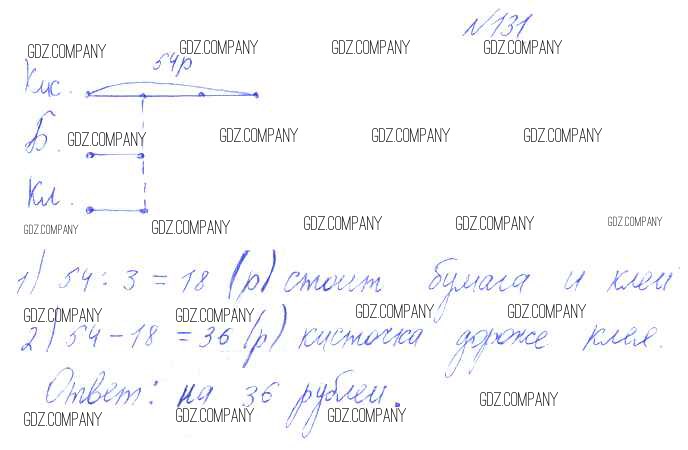 №131
GDZ.COMPANY GDZ.COMPANY GDZ.COMPANY GDZ.COMPANY
54р
Кис.
Б. GDZ.COMPANY GDZ.COMPANY GDZ.COMPANY GDZ.COMPANY
Кл.
GDZ.COMPANY GDZ.COMPANY GDZ.COMPANY GDZ.COMPANY GDZ.COMPANY
1) 54 : 3 = 18 (р) стоит бумага и клей
GDZ.COMPANY GDZ.COMPANY GDZ.COMPANY GDZ.COMPANY
2) 54 - 18 = 36 (р) кисточка дороже клея.
Ответ: на 36 рублей.
GDZ.COMPANY GDZ.COMPANY GDZ.COMPANY GDZ.COMPANY